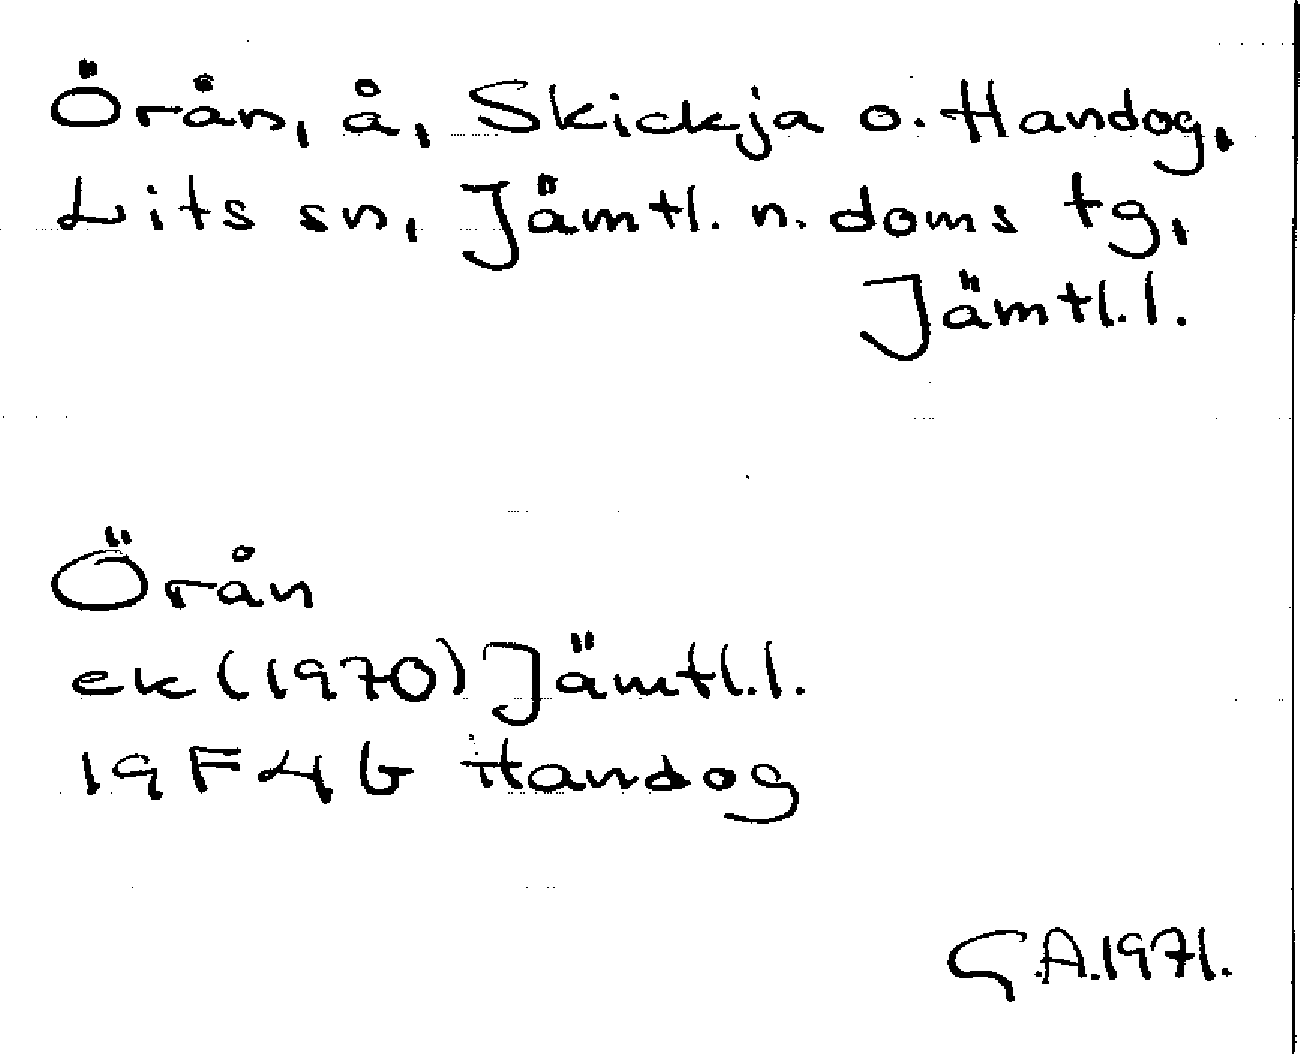 Örån, å, Skickja o. Handog,
Lits sn, Jämtl. n. doms tg,
Jämtl. l.
Örån
ek (1970) Jämtl. l.
19 F 4 b Handog
G.A. 1971.